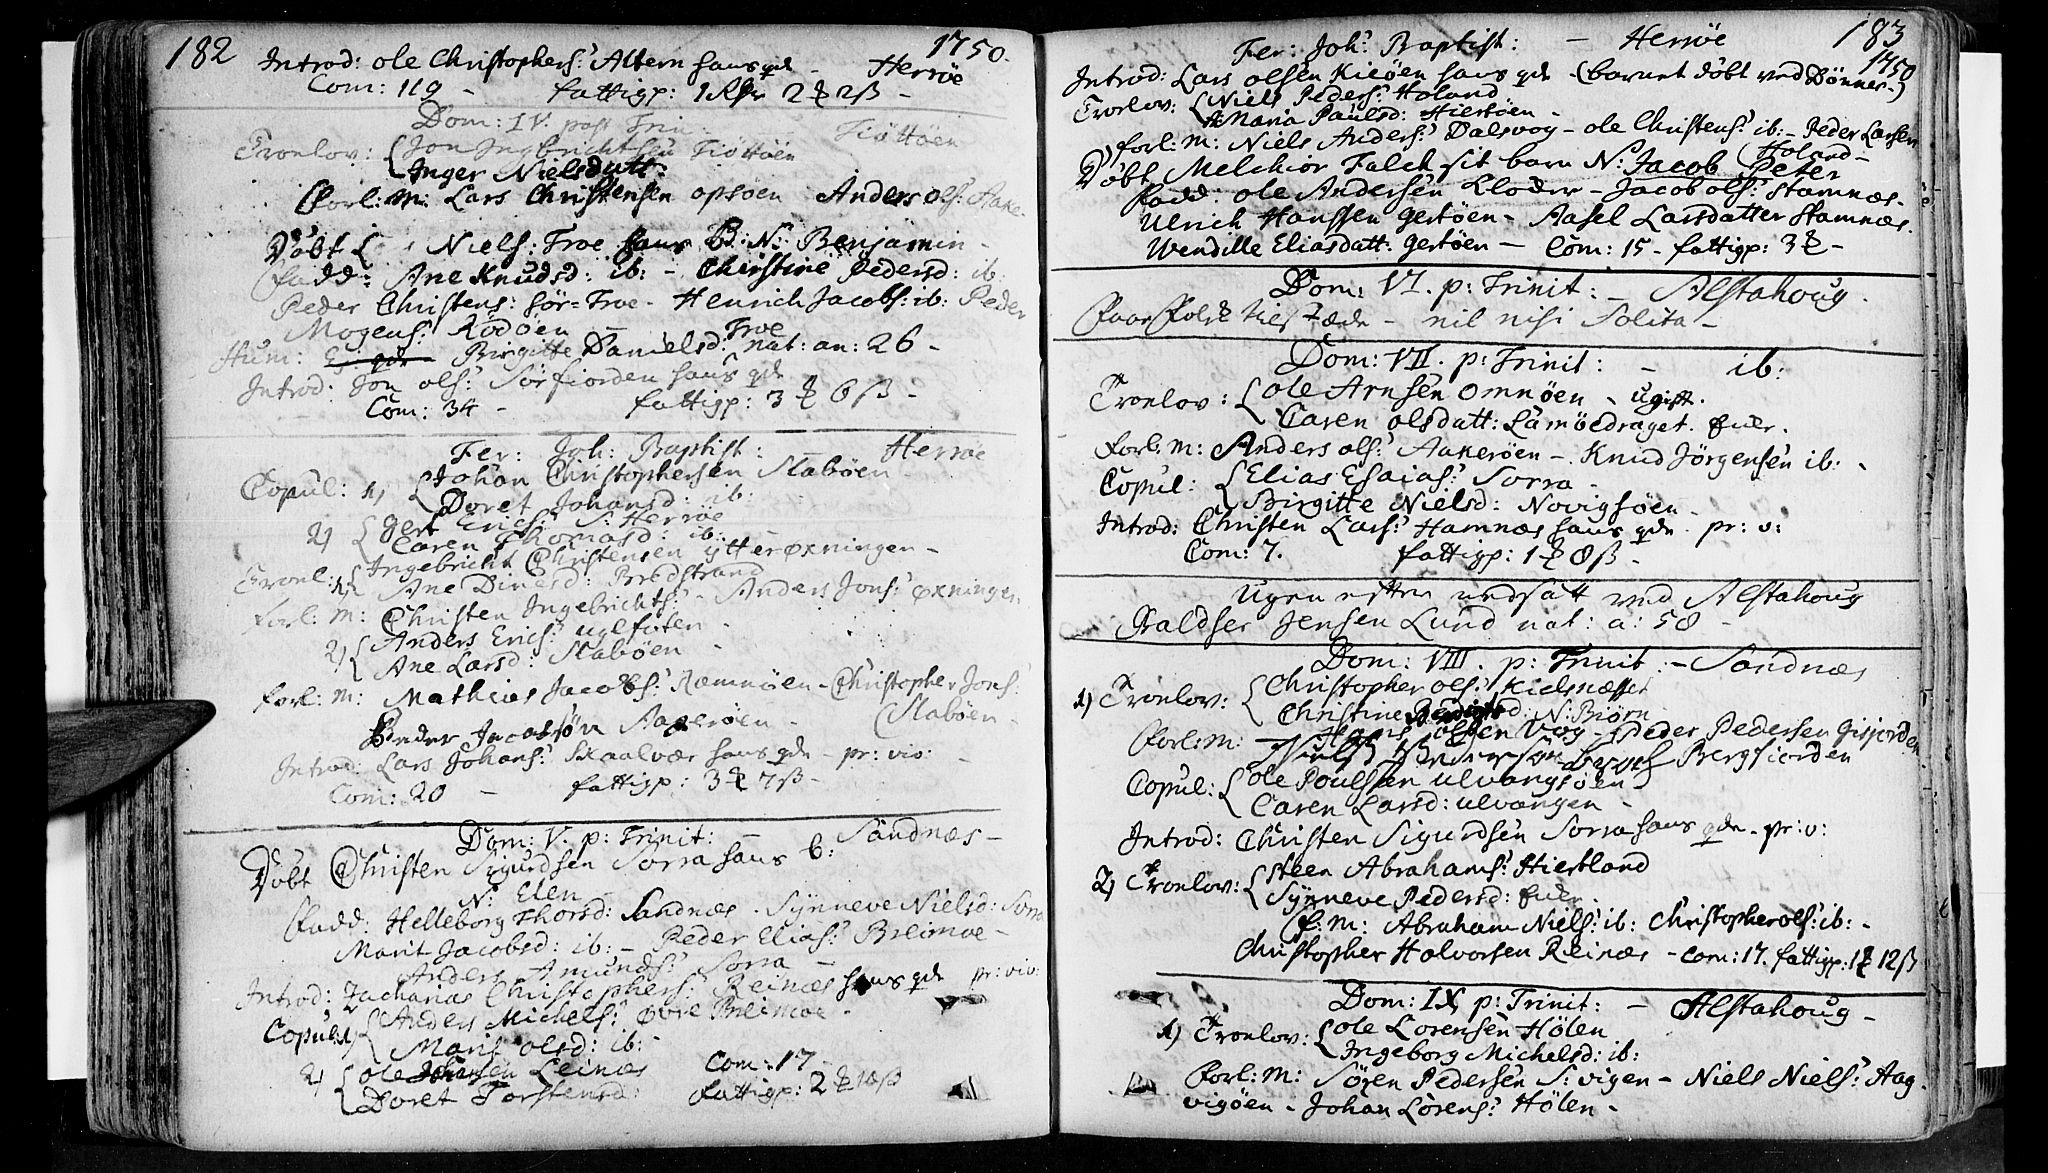 182
1750.
Introd: ole Christophers: Altern hans qde - Herröe
Com: 119 - fattigp: 1 Rdr 2 ℔ 2 ß -
Dom: IV. post Trin: Tiøttöen
Troelov: Jon Ingbrichtsen Tiøttöen
Inger Nielsdatt:
Forl: m: Lars Christensen opsöen Anders ols: Aake-
Döbt Niels: Froe hans B: N: Benjamin -
Fadd: Ane Knudsd: ib: - Christine Pedersd: ib:
Peder Christens: Sör-Froe - Henrich Jacobs: ib: Peder
Mogens: Rödöen Froe
Hum: Birgitte Danielsd: nat: an: 26 -
Introd: Jon ols: Sörfiorden hans qde
Com: 34 - fattigp: 3 ℔ 6 ß -
Fer: Joh: Baptist: - Herröe
Copul: 1) Johan Christophersen Slaböen -
Doret Johansd: ib:
2) Gert Erics: S: Herröe
Caren Thomasd: ib: -
Troel: 1) Ingebricht Christensen ytterøxningen -
Ane Dinesd: Bredstrand
Forl: m: Christen Ingebrichts: - Anders Jons: øxningen
2) Anders Erics: uglfoten -
Ane Larsd: Slaböen -
Forl: m: Mathias Jacobs: Ramnöen - Christopher Jons:
Slaböen -
Peder Jacobsön Aakeröen -
Introd: Lars Johans: Skaalvær hans qde - pr: viv: -
Com: 20 - fattigp: 3 ℔ 7 ß -
Dom: V. p: Trinit: - Sandnæs -
Döbt Christen Sigurdsen Sorra hans b:
N: Elen -
Fadd: Helleborg Thorsd: Sandnæs - Synneve Nielsd: Sorra
Marit Jacobsd: ib: - Peder Elias: Breimoe -
Anders Amunds: Sorra -
Introd: Zacharias Christophers: Reinæs hans qde pr: viv:
Copul: 1) Anders Michels: øvre Breimoe -
Marit olsd: ib: -
2) ole Johansen Leinæs Com: 17 -
Doret Torstensd: Fattigp: 2 ℔ ß
183
1750
Fer: Joh: Baptist: - Herröe
Introd: Lars olsen Kieöen hans qde - (barnet döbt ved Dönnes -)
Troelov: Niels Peders: Holand
Maria Paulsd: Hiertöen -
Forl: m: Niels Anders: Dalsvog - ole Christens: ib: - Peder Larsen
Holand -
Döbt Melchior Falch sit barn N: Jacob Peter
Fadd: ole Andersen Kloder - Jacob ols: Stamnæs -
Ulrich Hanssen Gertöen - Aasel Larsdatter Stamnæs.
Wendille Eliasdatt: Gertöen - Com: 15 - fattigp: 3 ℔ -
Dom: VI. p: Trinit: - Alstahoug.
Faae Folk tilstæde - nil nisi Solita -
Dom: VII. p: Trinit: - ib:
Troelov: ole Arnsen omnöen - ugift.
Caren olsdatt: Lamöedraget. Euer.
Forl: m: Anders ols: Aakeröen - Knud Jörgensen ib: -
Copul: Elias Esaias: Sorra -
Birgitte Nielsd: Novigsöen -
Introd: Christen Lars: Hamnæs hans qde pr: v:
Com: 7. fattigp: 1 ℔ 8 ß -
Ugen efter nedsatt ved Alstahoug
Baldser Jensen Lund nat: a: 58 -
Dom: VIII. p: Trinit: - Sandnæs
1) Troelov: Christopher ols: Kielsnæsset
Christine N: Biörn
Forl: m: Hans olsen Vog - Peder Pedersen Gisfiorden
Bergfiorden
Copul: ole Poulssen ulvangsöen
Caren Larsd: ulvangen -
Introd: Christen Sigurdsen Sorra hans qde - pr: v:
2) Troelov: Steen Abrahams: Hiertland
Synneve Pedersd: Euer -
F: m: Abraham Niels: ib: Christopher ols: ib: -
Christopher Halvorsen Reinæs - Com: 17. fattigp: 1 ℔ 12 ß
Dom: IX p: Trinit: - Alstahoug -
1) Troelov: ole Lorensen Hölen
Ingeborg Michelsd: ib:
Forl: m: Sören Pedersen S: vigen - Niels Niels: Aag
vigöen - Johan Lorens: Hölen -